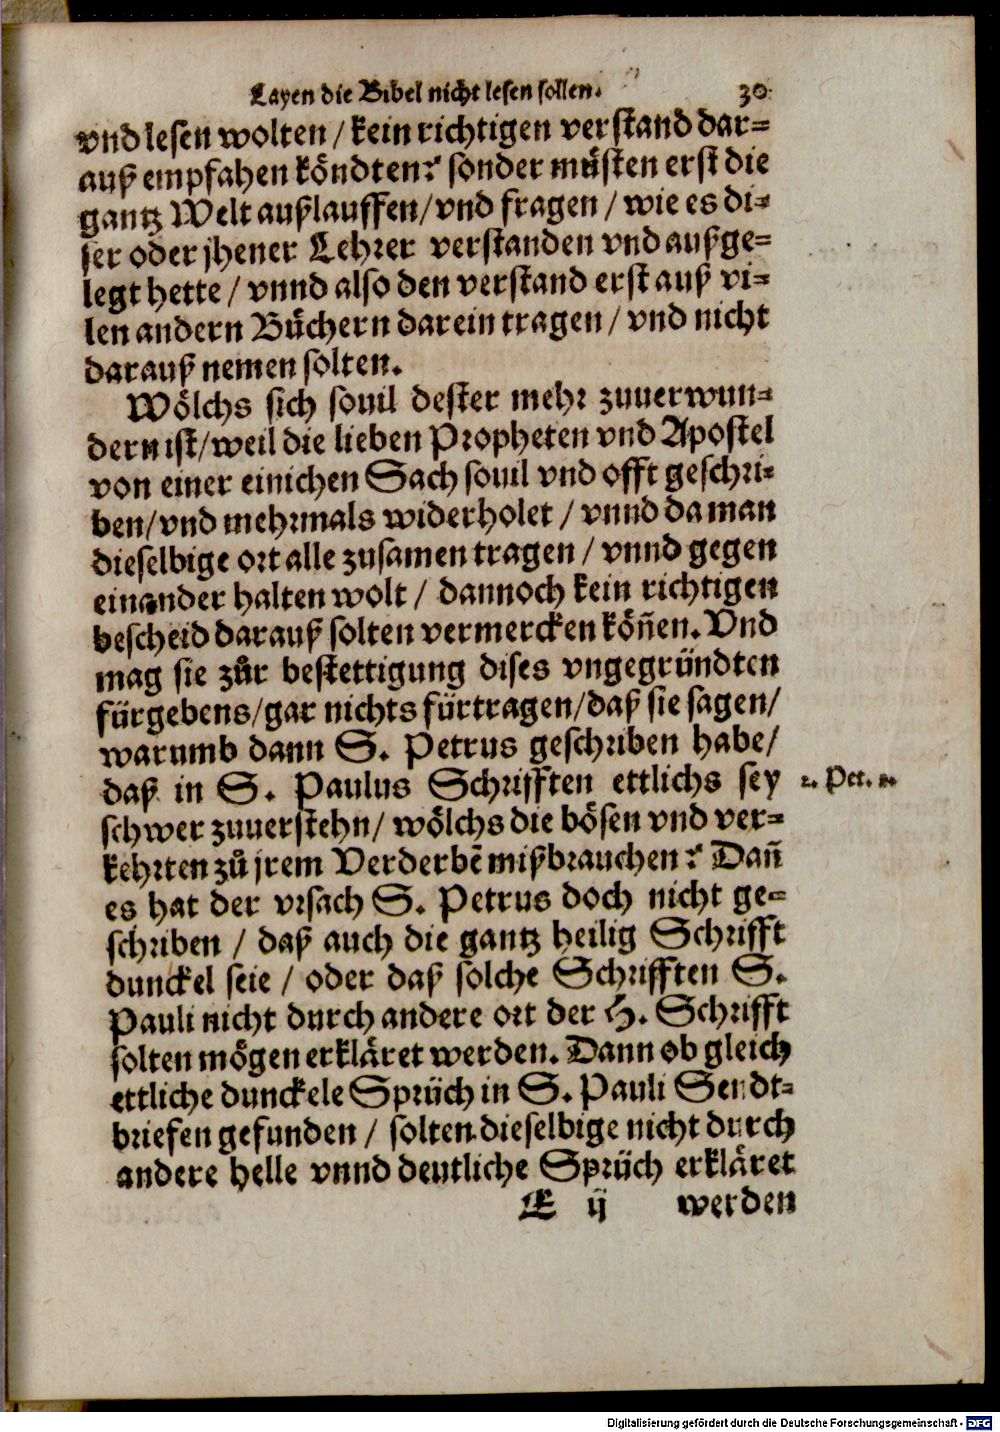 Layen die Bibel nicht lesen sollen. 30
vnd lesen wolten / kein richtigen verstand dar=
auß empfahen köndten? sonder müsten erst die
gantz Welt außlauffen/vnd fragen / wie es di=
ser oder jhener Lehrer verstanden vnd außge=
legt hette / vnnd also den verstand erst auß vi=
len andern Büchern darein tragen / vnd nicht
darauß nemen solten.
Wölchs sich souil dester mehr zuuerwun=
dern ist/weil die lieben Propheten vnd Apostel
von einer einichen Sach souil vnd offt geschri=
ben/vnd mehrmals widerholet / vnnd da man
dieselbige ort alle zusamen tragen / vnnd gegen
einander halten wolt / dannoch kein richtigen
bescheid darauß solten vermercken köñen. Vnd
mag sie zůr bestettigung dises vngegründten
fürgebens/gar nichts fürtragen/daß sie sagen/
warumb dann S. Petrus geschriben habe/
daß in S. Paulus Schrifften ettlichs sey
2. Pet. 3.
schwer zuuerstehn/ wölchs die bösen vnd ver=
kehrten zů jrem Verderbē mißbrauchen? Dañ
es hat der vrsach S. Petrus doch nicht ge=
schriben / daß auch die gantz heilig Schrifft
dunckel seie / oder daß solche Schrifften S.
Pauli nicht durch andere ort der H. Schrifft
solten mögen erkläret werden. Dann ob gleich
ettliche dunckele Sprüch in S. Pauli Sendt=
briefen gefunden / solten dieselbige nicht durch
andere helle vnnd deutliche Sprüch erkläret
E ij werden
Digitalisierung gefördert durch die Deutsche Forschungsgemeinschaft - DFG